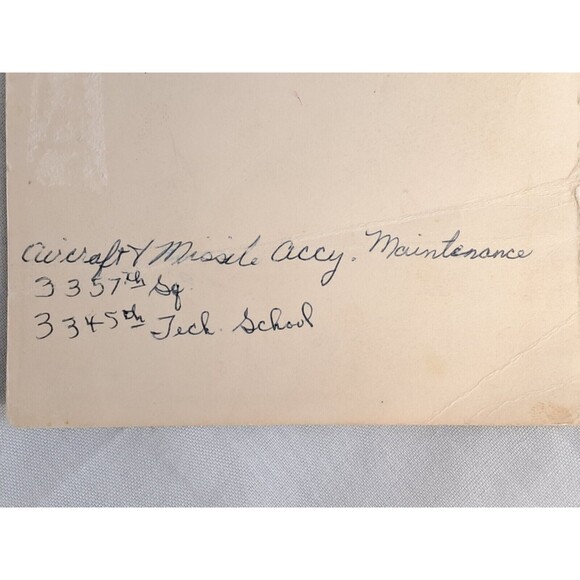 Aircraft & Missile Accy. Maintenance
3357th Sq.
3345th Tech. School